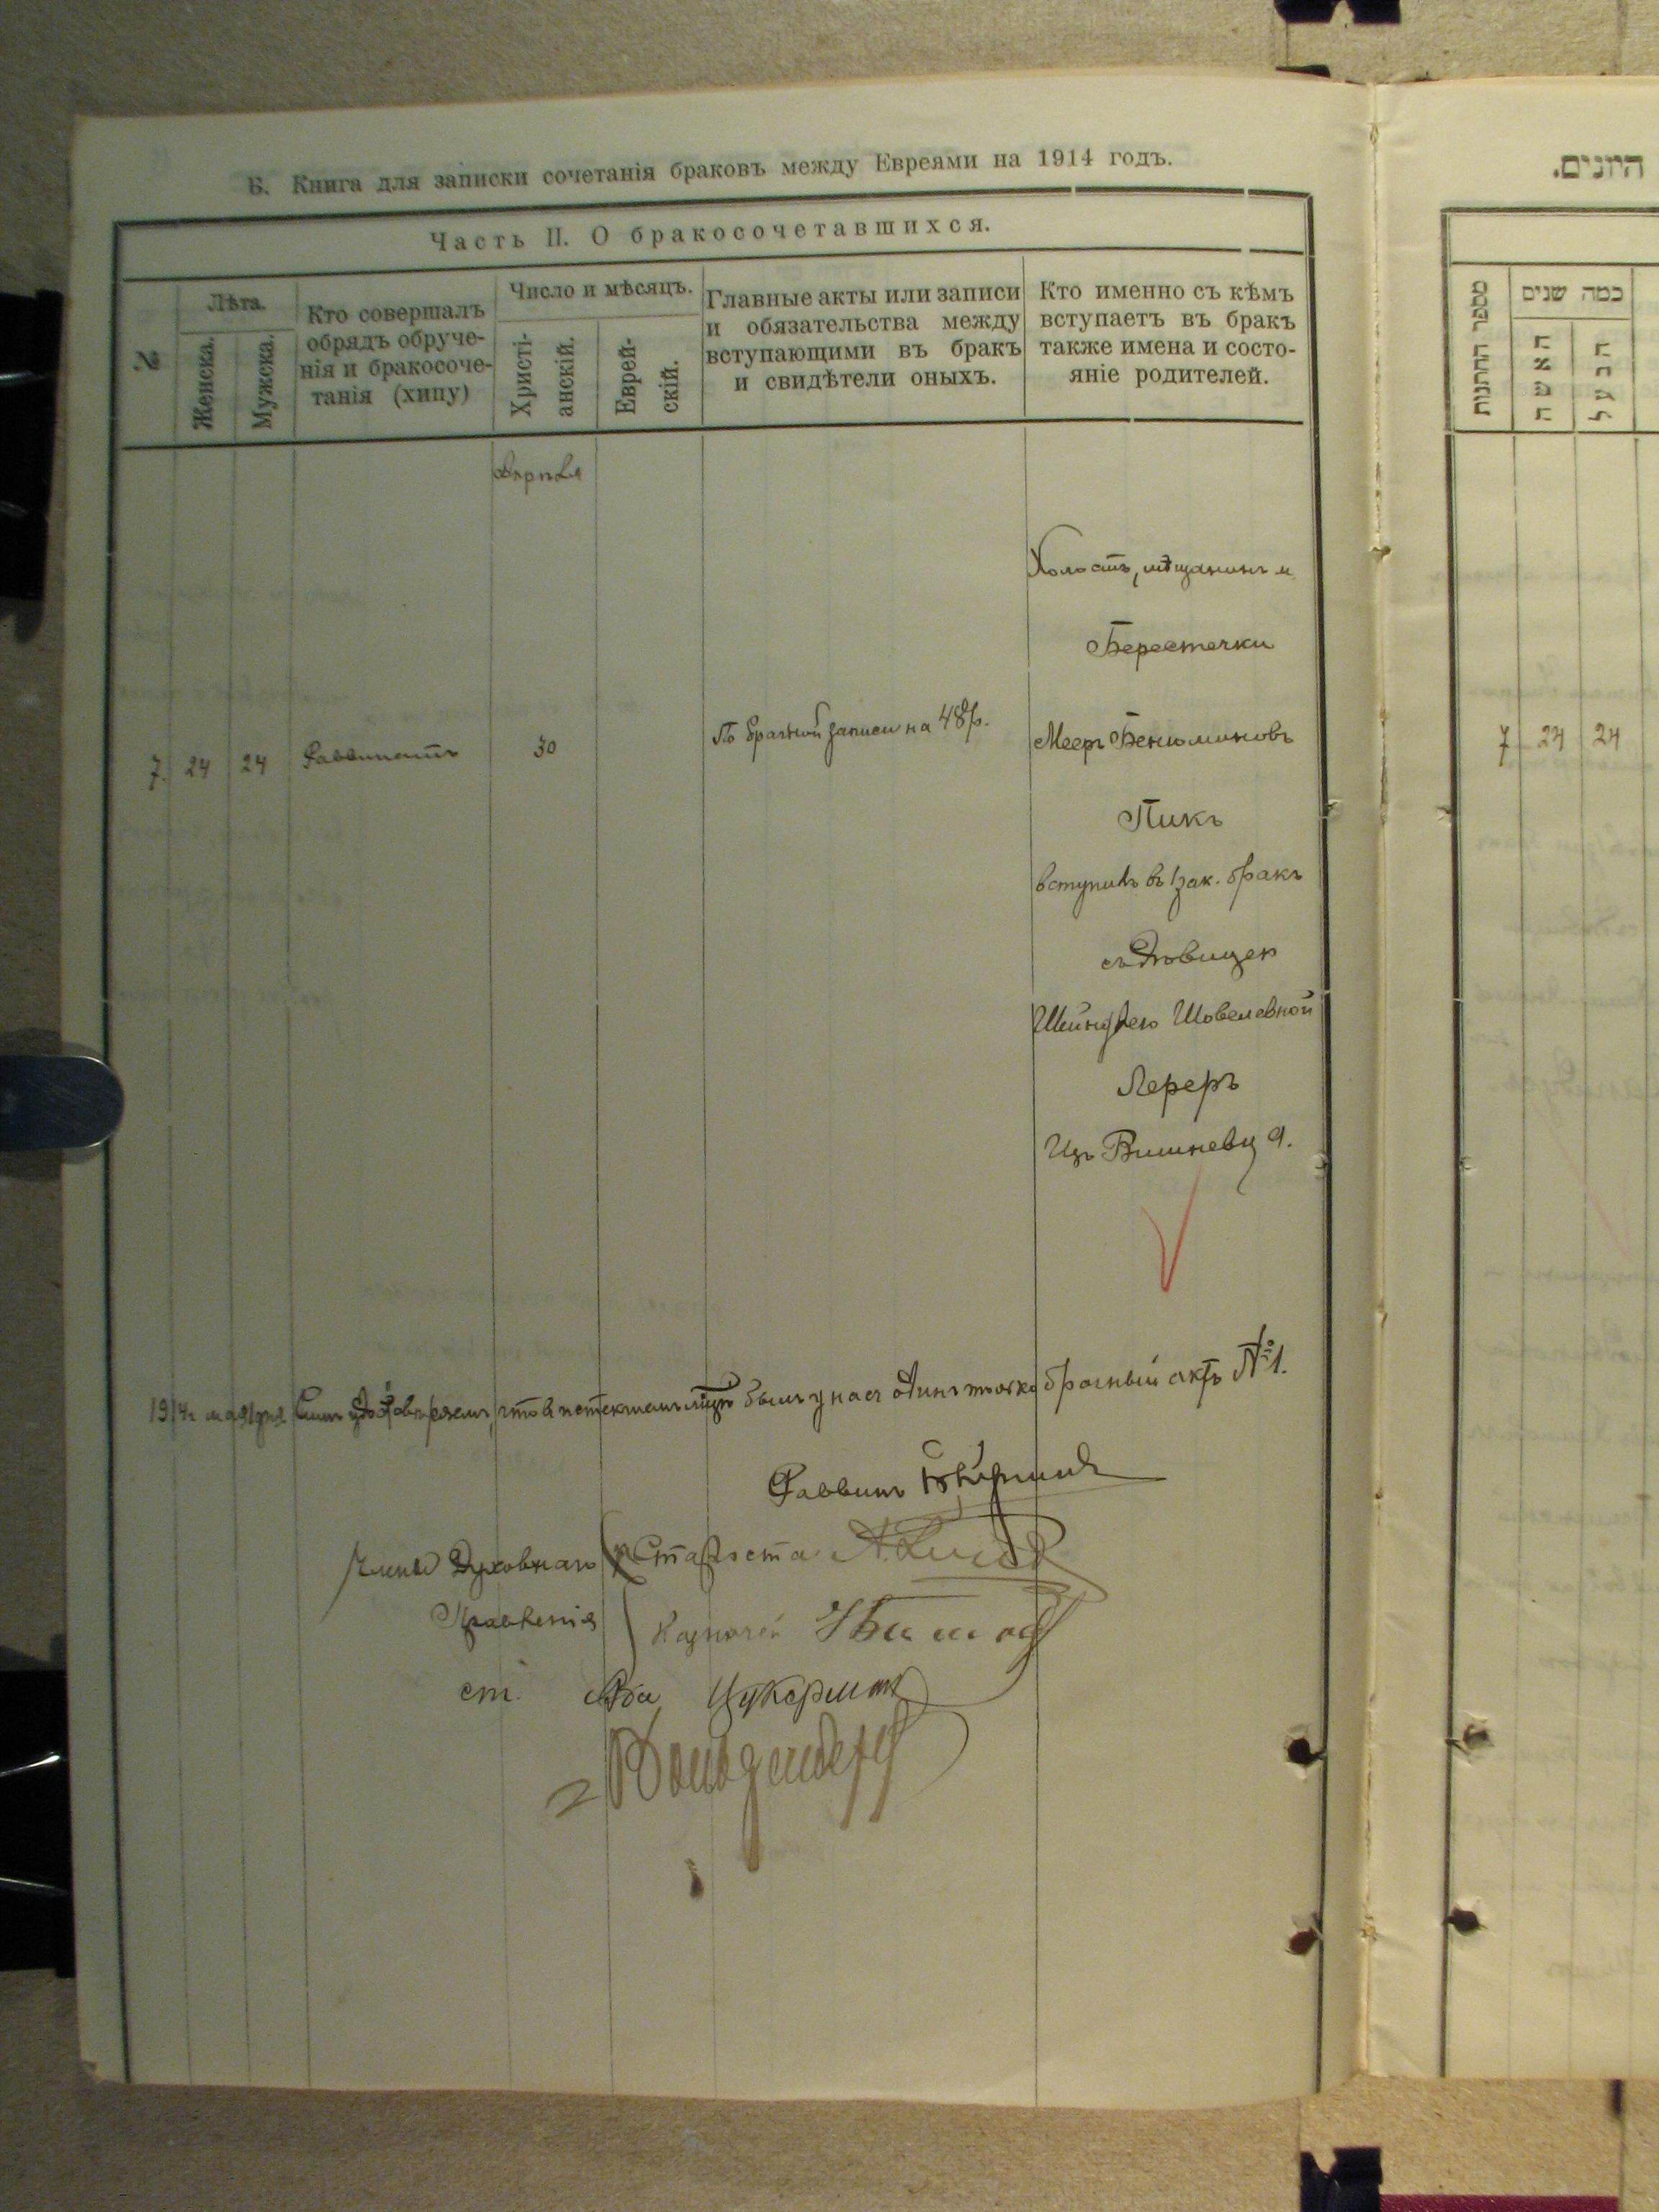 Б. Книга для записки сочетанія браковъ между Евреями на 1914 годъ.
Часть II. О бракосочетавшихся.
№
Лѣта.
Женска.
Мужска.
Кто совершалъ
обрядъ обруче-
нія и бракосоче-
танія (хипу)
Число и мѣсяцъ.
Христі-
анскій.
Еврей-
скій.
Главные акты или записи
и обязательства между
вступающими въ бракъ
и свидѣтели оныхъ.
Кто именно съ кѣмъ
вступаетъ въ бракъ
также имена и состо-
яніе родителей.
Апрѣля
Холостъ, мѣщанинъ м.
Берестечки
7. 24 24 Раввинатъ 30 По брачной записи на 48 р. Мееръ Бенюминовъ
Пикъ
вступилъ въ 1 зак. бракъ
съ дѣвицею
Шейндлею Шовелевной
Лереръ
Изъ Вишневца.
1914 г. мая 1 дня Симъ удостовѣряемъ, что въ истекшемъ мцѣ былъ у насъ одинъ только брачный актъ № 1.
Раввинъ
Члены Духовнаго Староста
Правленія Казначей
Цукерман
היונים.
מספר החתנות
כמה שנים
האשה
הבעל
7 24 24